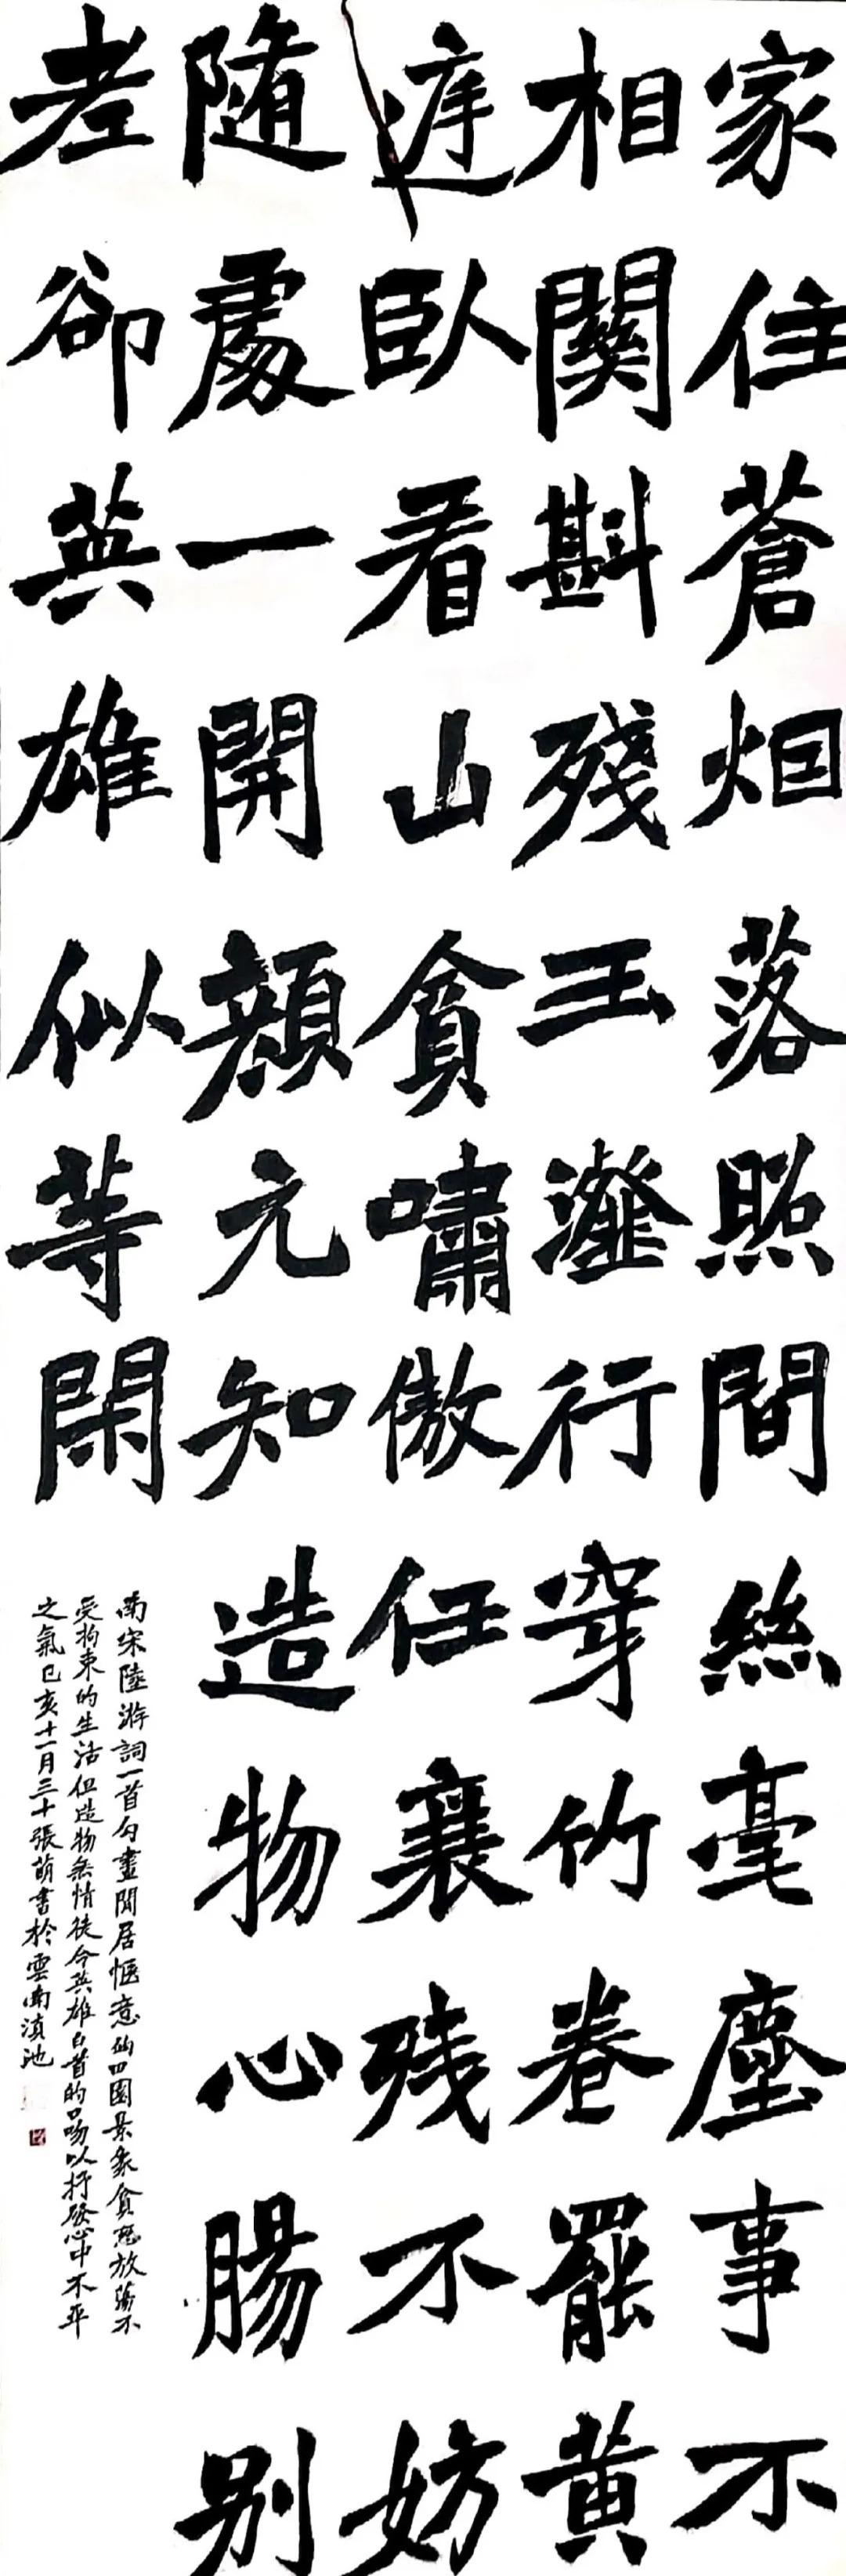 家住蒼烟落照間絲毫塵事不
相關斟殘玉瀣行穿竹卷罷黄
庭卧看山貪嘯傲任襄残不妨
隨處一開顔元知造物心腸别
老卻英雄似等閑
南宋陸游詞一首勾畫閒居愜意的田園景象貪戀放蕩不
受拘束的生活但造物無情徒令英雄白首的口吻以抒發心中不平
之氣己亥十一月三十張萌書於雲南滇池